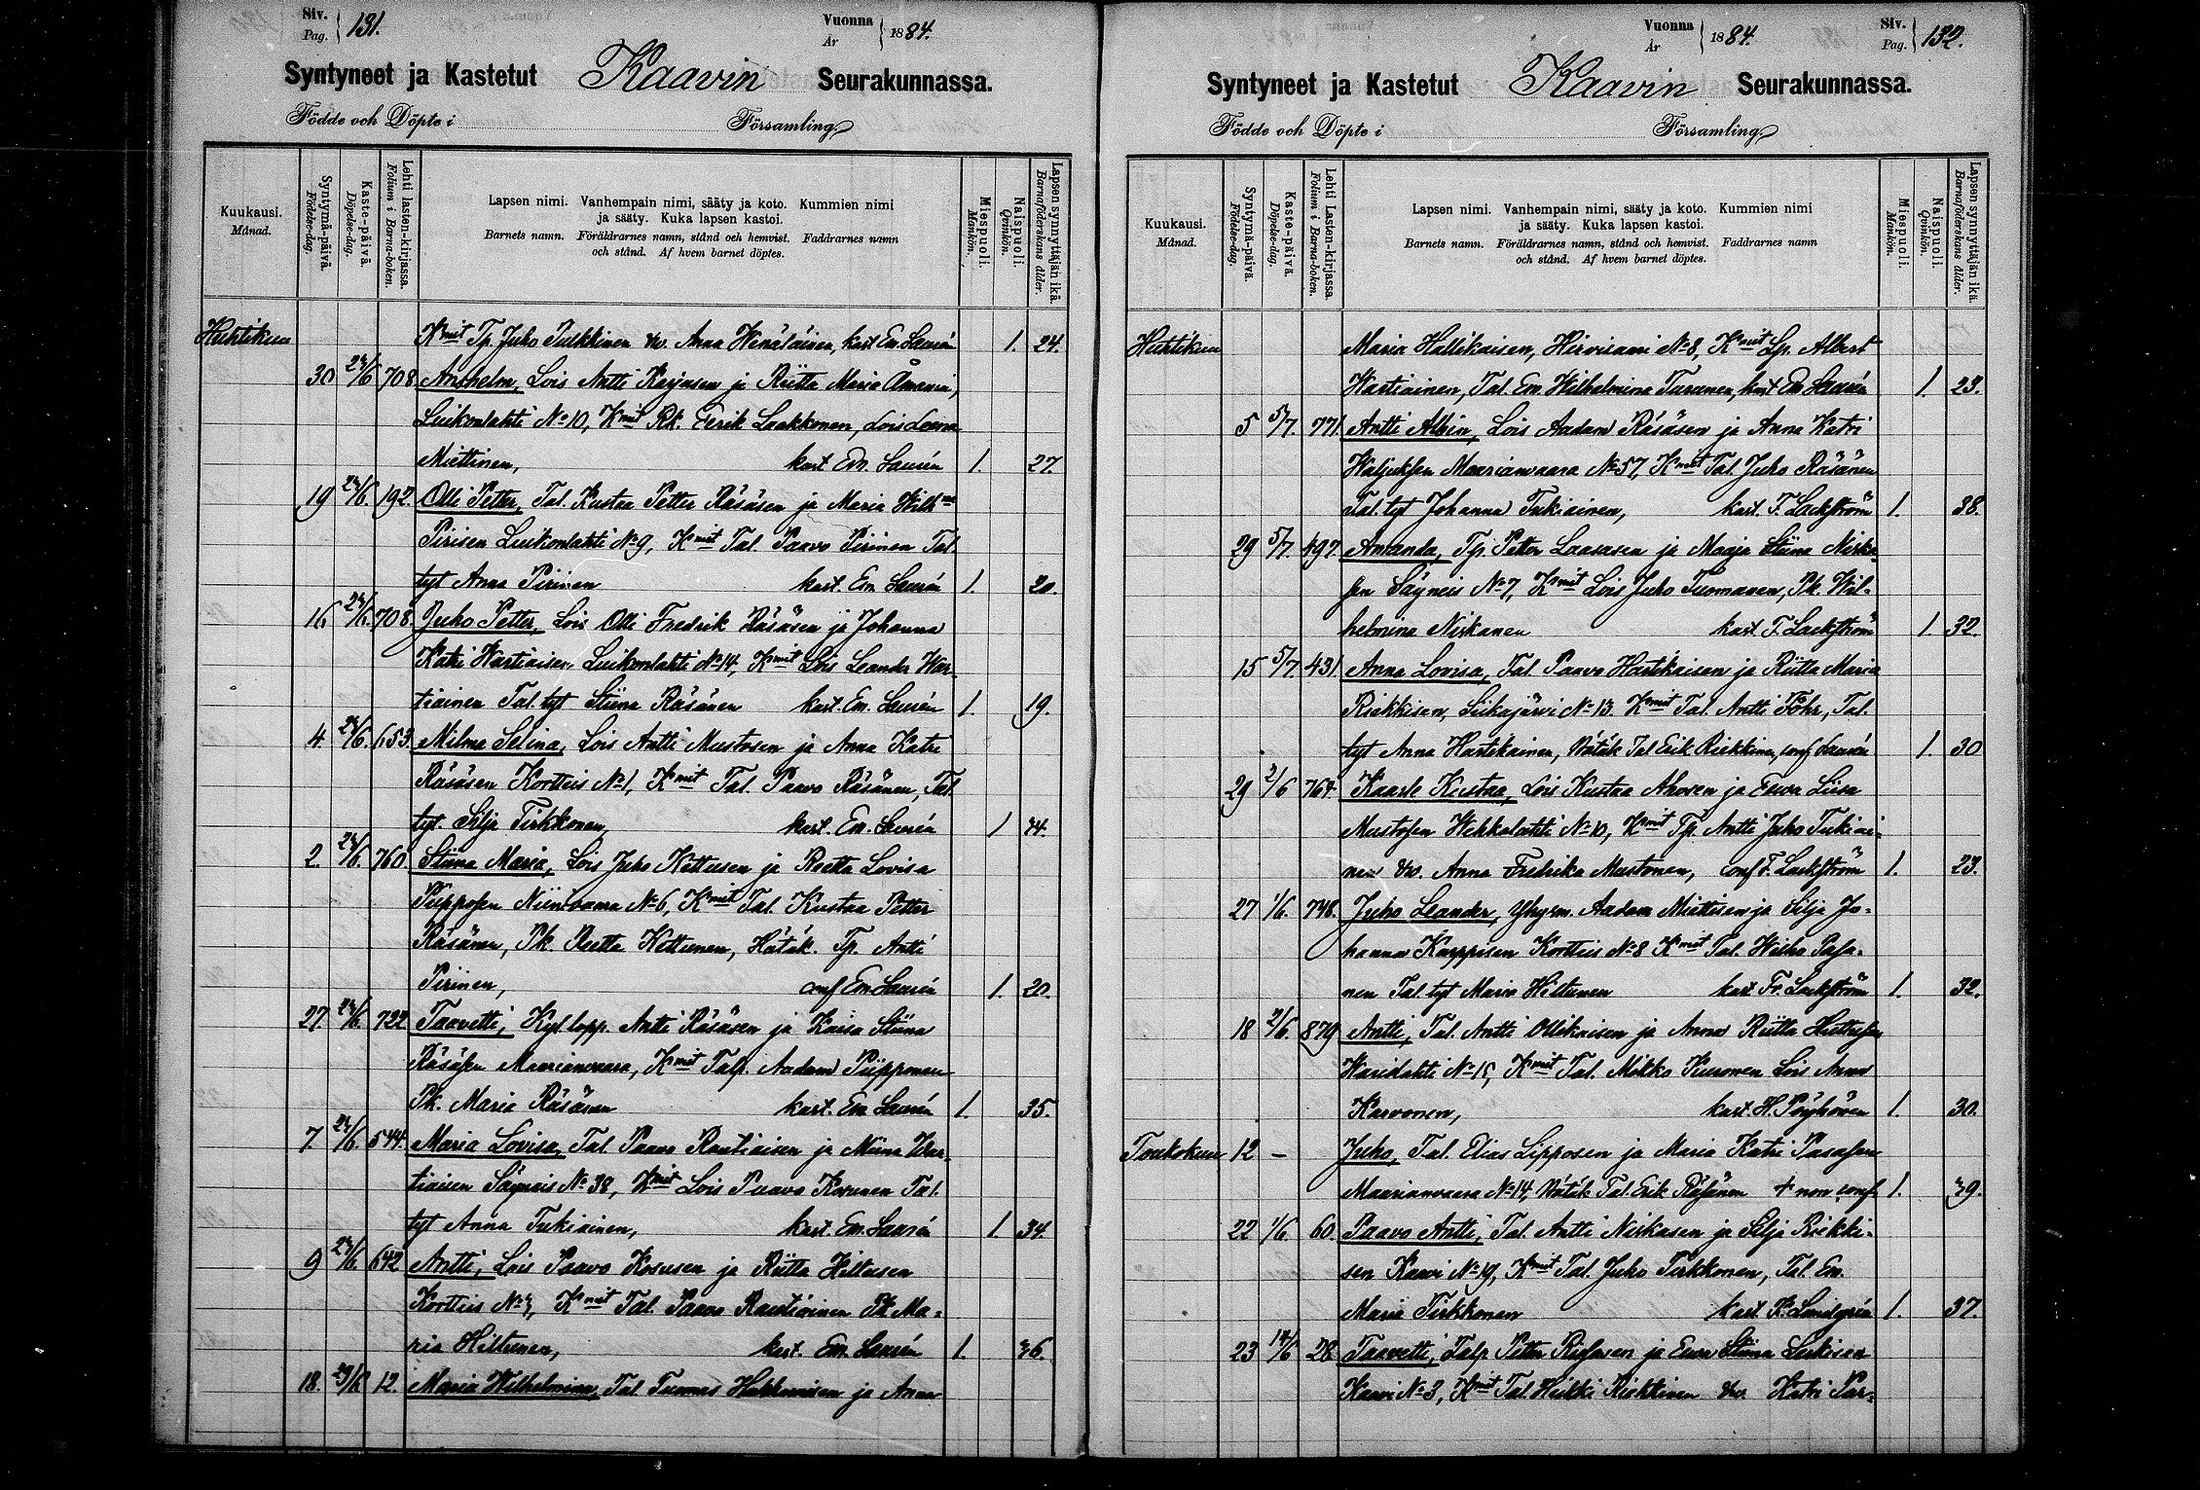 Siv. Pag. 131. Vuonna År 1884.
Syntyneet ja Kastetut Kaavin Seurakunnassa.
Födde och Döpte i Församling
Kuukausi. Månad.
Syntymä-päivä. Födelse-dag.
Kaste-päivä. Döpelse-dag.
Lehti lasten-kirjassa. Folium i Barna-boken.
Lapsen nimi. Vanhempain nimi, sääty ja koto. Kummien nimi
ja sääty. Kuka lapsen kastoi.
Barnets namn. Föräldrarnes namn, stånd och hemvist. Faddrarnes namn
och stånd. Af hvem barnet döptes.
Miespuoli. Mankön.
Naispuoli. Qvinkön.
Lapsen synnyttäjän ikä. Barnaföderskans ålder.
Huhtikuu Kmit Tp. Juho Pulkkinen vv. Anna Wenäläinen, kast Em. Laurén 1. 24.
30 24/6 708 Anshelm, Lois Antti Karjusen ja Riitta Maria
Luikonlahti No 10, Kmit Rk. Eerik Laakkonen, Lois Leena
Miettinen, kast Em. Laurén 1. 27.
19 24/6. 192. Olli Petter, Tal. Kustaa Petter Räsäsen ja Maria Wilhna
Pirisen Luikonlahti No 9, Kmit Tal. Paavo Pirinen Tal.
tyt Anna Pirinen kast. Em. Laurén 1. 20.
16 24/6. 708. Juho Petter, Lois Olli Fredrik Räsäsen ja Johanna
Katri Wartiaisen Luikonlahti No 14, Kmit Lois Leander War-
tiainen Tal. tyt Stiina Räsänen kast. Em. Laurén 1. 19.
4. 24/6. 653. Milma Selina, Lois Antti Mustosen ja Anna Katri
Räsäsen Kortteis No 1, Kmit Tal. Paavo Räsänen, Tal.
tyt. Silja Tirkkonen kast. Em. Laurén 1 44.
2. 24/6. 760. Stiina Maria, Lois Juho Kettusen ja Reetta Lovisa
Piipposen Niinivaara No 6, Kmit Tal. Kustaa Petter
Räsänen, Pk. Reetta Kettunen, Hätäk. Tp. Antti
Pirinen, conf Em. Laurén 1. 20.
27 24/6. 722 Taavetti, Kyl. lopp. Antti Räsäsen ja Kaisa Stiina
Räsäsen Maarianvaara, Kmit Talp. Aadam Piipponen
Pk. Maria Räsänen kast. Em. Laurén 1. 35.
7. 24/6. 544. Maria Lovisa, Tal. Paavo Rautiaisen ja Miina War-
tiaisen Säyneis No 38, Kmit Lois Paavo Korunen Tal.
tyt Anna Tukiainen, kast. Em. Laurén 1. 34.
9 24/6 642 Antti, Lois Paavo Kosusen ja Riitta Hiltusen
Kortteis No 4, Kmit Tal. Paavo Rautiainen Pk Ma-
ria Hiltunen, kast. Em. Laurén 1. 36.
18. 29/6 12. Maria Wilhelmina, Tal Tuomas Hakkaraisen ja Anna
Vuonna År 1884. Siv. Pag. 132.
Syntyneet ja Kastetut Kaavin Seurakunnassa.
Födde och Döpte i Församling
Kuukausi. Månad.
Syntymä-päivä. Födelse-dag.
Kaste-päivä. Döpelse-dag.
Lehti Lasten-kirjassa. Folium i Barna-boken.
Lapsen nimi. Vanhempain nimi, sääty ja koto. Kummien nimi
ja sääty. Kuka lapsen kastoi.
Barnets namn. Föräldrarnes namn, stånd och hemvist. Faddrarnes namn
och stånd. Af hvem barnet döptes.
Miespuoli. Mankön.
Naispuoli. Qvinkön.
Lapsen synnyttäjän ikä. Barnaföderskans ålder.
Huhtikuu Maria Hallikaisen, Hirvisaari No 8, Kmit Lp. Albert
Wartiainen, Tal. Em. Wilhelmina Turunen, kast Em Laurén 1. 23.
5 5/7. 771 Antti Albin, Lois Aadam Räsäsen ja Anna Katri
Waljuksen Maarianvaara No 57, Kmit Tal. Juho Räsänen
Tal. tyt Johanna Tukiainen, kast. F. Lackström 1. 38.
29 5/7. 497. Amanda, Tp. Petter Laasasen ja Maaja Stiina Niska-
sen Säyneis No 7, Kmit Lois Juho Tuomanen, Pk. Wil-
helmina Niskanen kast F. Lackström 1. 32.
15 5/7. 431 Anna Lovisa, Tal. Paavo Hartikaisen ja Riitta Maria
Riekkisen, Siikajärvi No 13. Kmit Tal. Antti Föhr, Tal.
tyt Anna Hartikainen, Hätäk Tal Erik Riekkinen, conf Laurén 1 30
29 2/6 764. Kaarle Kustaa, Lois Kustaa Ahosen ja Eeva Liisa
Mustosen Wehkalahti No 10, Kmit Tp. Antti Juho Tukiai-
nen vv. Anna Fredrika Mustonen, conf F. Lackström 1. 23.
27 1/6. 748. Juho Leander, Yhysm. Aadam Miettisen ja Silja Jo-
hanna Karppisen Kortteis No 8 Kmit Tal. Wilho Pasa-
nen Tal. tyt Maria Hiltunen kast Fr. Lackström 1. 32.
18 2/6. 879 Antti, Tal. Antti Ollikaisen ja Anna Riitta Huttusen
No 15, Kmit Tal. Mikko Kuronen Lois Anna
Karvonen, kast. H. Pöyhönen 1. 30.
Toukokuu 12 – Juho, Tal. Elias Lipposen ja Maria Katri Pasasen
Maarianvaara No 14, Hätäk Tal. Erik Räsänen + non conf 1. 39.
22 1/6. 60. Paavo Antti, Tal. Antti Niskasen ja Silja Riekki-
sen Kaavi No 19, Kmit Tal. Juho Tirkkonen, Tal. Em.
Maria Tirkkonen kast. K. Lundgrén 1. 37.
23 14/6 28. Taavetti, Talp. Petter ja Eeva Stiina
Kaavi No 3, Kmit Tal. Heikki Riekkinen vv. Katri Par-